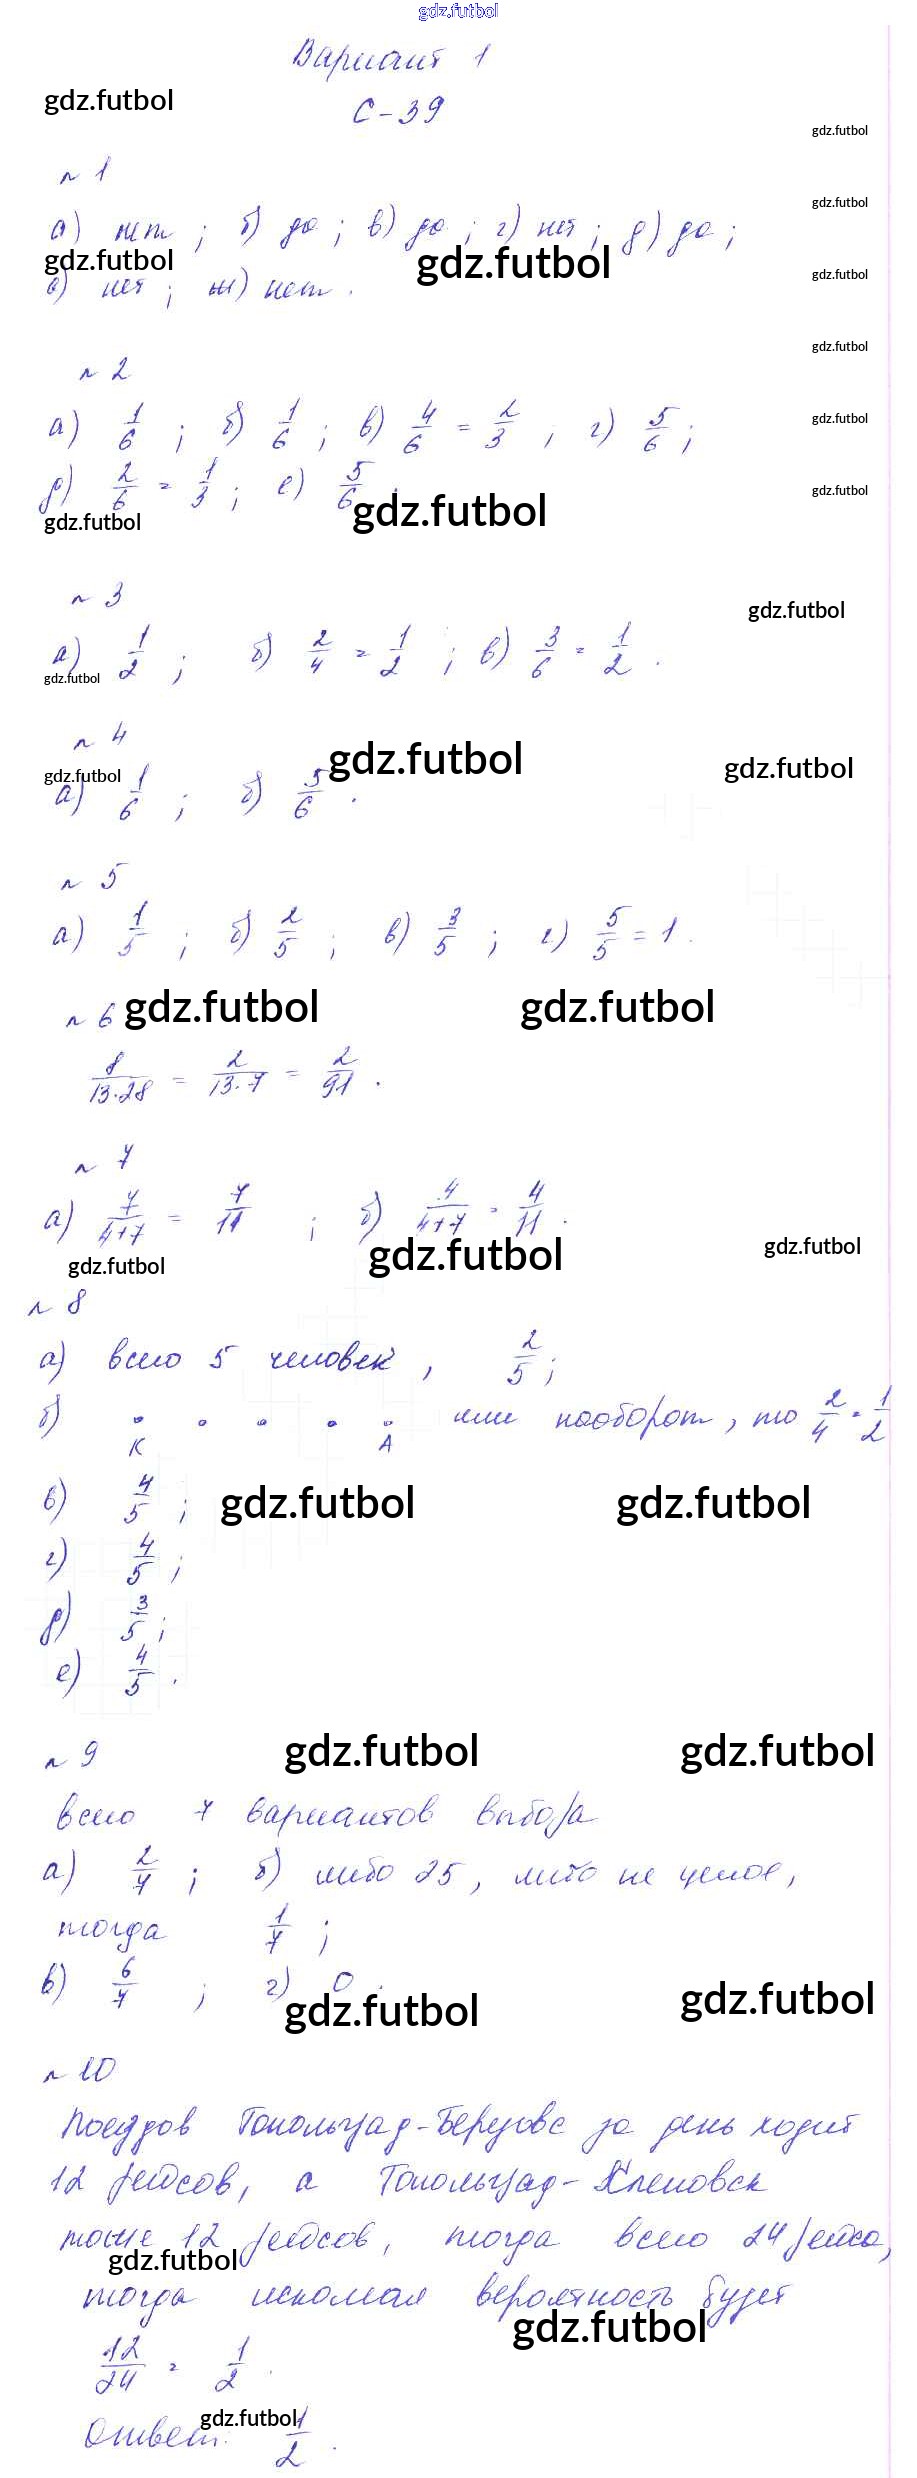 gdz.futbol
Вариант 1
gdz.futbol
С-39
gdz.futbol
n 1
gdz.futbol
а) нет ; б) да ; в) да ; г) нет ; д) да ;
gdz.futbol gdz.futbol gdz.futbol
е) нет ; ж) нет .
gdz.futbol
n 2
gdz.futbol
а) 1/6 ; б) 1/6 ; в) 4/6 = 2/3 ; г) 5/6 ;
д) 2/6 = 1/3 ; е) 5/6 .
gdz.futbol
gdz.futbol gdz.futbol
n 3
gdz.futbol
а) 1/2 ; б) 2/4 = 1/2 ; в) 3/6 = 1/2 .
gdz.futbol
n 4
gdz.futbol gdz.futbol gdz.futbol
а) 1/6 ; б) 5/6 .
n 5
а) 1/5 ; б) 2/5 ; в) 3/5 ; г) 5/5 = 1 .
n 6 gdz.futbol gdz.futbol
8/13·28 = 2/13·7 = 2/91 .
n 7
а) 7/4+7 = 7/11 ; б) 4/4+7 = 4/11 .
gdz.futbol gdz.futbol gdz.futbol
n 8
а) всего 5 человек , 2/5 ;
б) . . . . . или наоборот , то 2/4 = 1/2
К А
в) 4/5 ; gdz.futbol gdz.futbol
г) 4/5 ;
д) 3/5 ;
е) 4/5 .
n 9 gdz.futbol gdz.futbol
всего 7 вариантов выбора
а) 2/7 ; б) либо 25 , либо не целое ,
тогда 1/7 ;
в) 6/7 ; г) 0 .
gdz.futbol gdz.futbol
n 10
Поездов Топольград-Березовс за день ходит
12 рейсов, а Топольград-Кленовск
тоже 12 рейсов, тогда всего 24 рейса,
gdz.futbol
тогда искомая вероятность будет
gdz.futbol
12/24 = 1/2 .
gdz.futbol
Ответ: 1/2 .